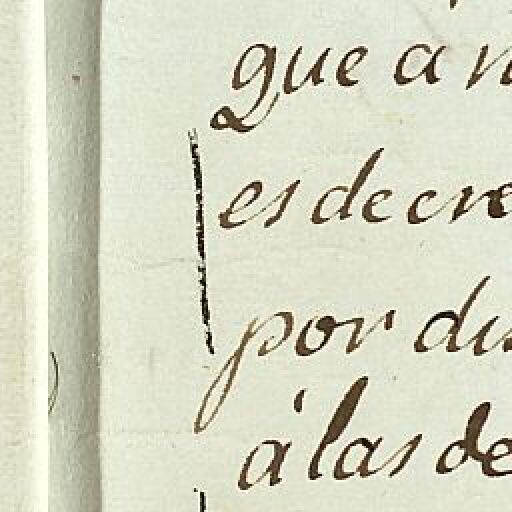 que a n
es de cre
por du
á las de